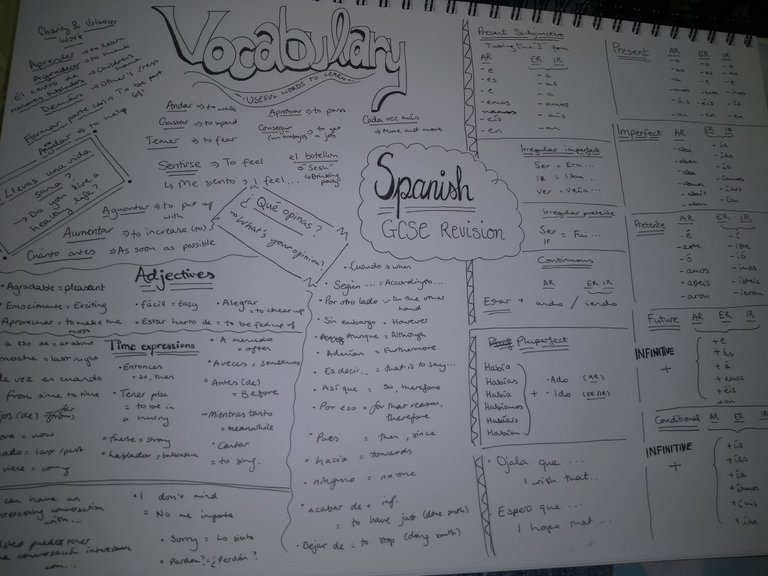 Vocabulary
USEFUL WORDS TO LEARN
Charity & Volunteer
Work
Aprender → to learn
El centro de
Demás → Other's / rest
Ayudar → to help
¿Llevas una vida
sana?
→ Do you live a
healthy life?
Andar → to walk
Gastar → to spend
Temer → to fear
Sentirse → To feel
↳ Me siento → I feel...
Aguantar → to put up
with
Aumentar → to increase (to)
Cuanto antes → As soon as possible
Aprobar → to pass
Conseguir → to get
(un trabajo) a job
el botellon
→ "Sesh"
↳ Drinking
party
Cada vez más
→ More and more
¿Qué opinas?
→ What's your opinion?
Spanish
GCSE Revision
Adjectives
• Agradable = pleasant
• Emocionante = Exciting
• Fácil = Easy
• Alegrar
→ to cheer up
to make the
most
• Estar harto de = to be fed up of
Time expressions
noche = last night
de vez en cuando
from time to time
• Entonces
= so, then
• Tener prisa
= to be in
a hurry
• fuerte = strong
• hablador = talkative
• A menudo
= often
• Aveces = sometimes
• Antes (de)
= Before
• Mientras tanto
= meanwhile
• Cantar
= to sing.
can have an
interesting conversation
with...
conversación interesante
con...
• I don't mind
= No me importa
• Sorry = Lo siento
• Pardon? = ¿Perdón?
• Cuando = when
• Según ... = According to...
• Por otro lado = On the other
hand
• Sin embargo = However
• Aunque = Although
• Además = Furthermore
• Es decir... = that is to say...
• Así que = So, therefore
• Por eso = for that reason,
therefore
Pues = then, since
• hacia = towards
• ninguno = no one
• acabar de + inf.
= to have just (done smth)
• Dejar de = to stop (doing smth)
Present Subjunctive
Taking the "I" form
AR ER IR
-e -a
-es -as
-e -a
-emos -amos
-éis -áis
-en -an
Irregular imperfect
Ser = Era...
IR = Iba...
Ver = Veía...
Irregular preterite
Ser
Ir = Fui...
Continuous
AR ER IR
Estar + ando / iendo
Pluperfect
Había
Habías
Había
Habíamos
Habíais
Habían
+ -Ado (AR)
-Ido (ER/IR)
• Ojala que ...
I wish that..
• Espero que ...
I hope that ...
Present AR ER IR
-o -o -o
-as -es -es
-a -e -e
-amos -emos -imos
-áis -éis -ís
-an -en -en
Imperfect AR ER IR
-aba -ía
-abas -ías
-aba -ía
-abamos -íamos
-abais -íais
-aban -ían
AR ER IR
-é -í
-aste -iste
-ó -ió
-amos -imos
-asteis -isteis
-aron -ieron
Future AR ER IR
INFINITIVE
+
+é
+ás
+á
+emos
+éis
+án
Conditional AR ER IR
INFINITIVE
+
+ía
+ías
+ía
+íamos
+íais
+ían